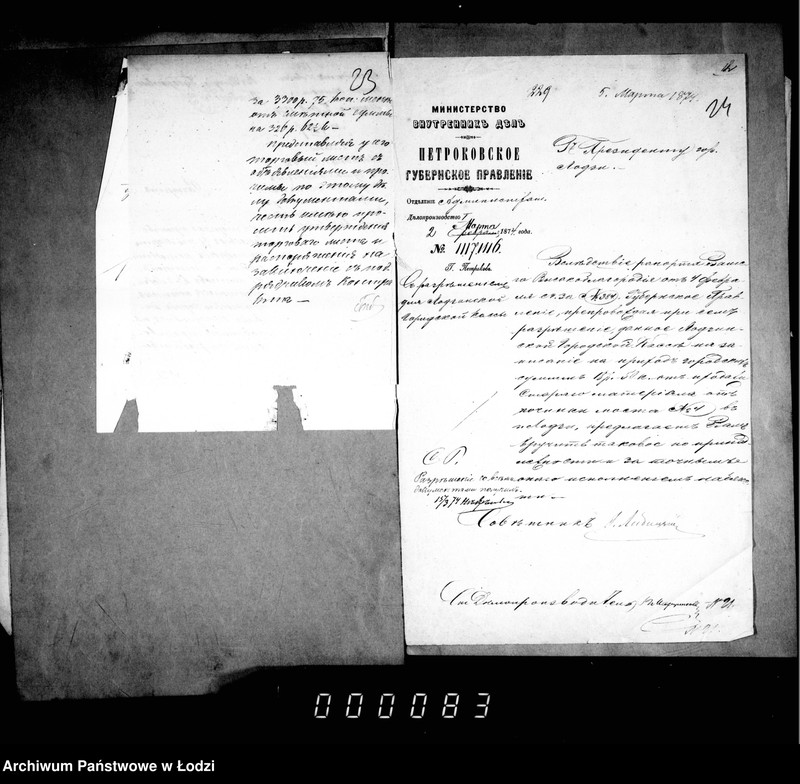 23
за 3300 р. 75 коп. менѣе
отъ смѣтной суммы
на 326 р. 62½ к. —
Представляя у сего
торговый листъ съ
объявленіями и про-
чими по этому дѣ-
лу документами,
честь имѣю про-
сить утвержденія
торговаго листа и
распоряженія на
заключеніе съ под-
рядчикомъ контра-
кта —
229
5 Марта 1874
24
МИНИСТЕРСТВО
ВНУТРЕННИХЪ ДѢЛЪ
ПЕТРОКОВСКОЕ
ГУБЕРНСКОЕ ПРАВЛЕНІЕ
Отдѣленіе Административн.
Дѣлопроизводство I
2 Марта 1874 года.
№ 1117/1116.
Г. Петроковъ
Съ разрѣшеніемъ
для Лодзинской
Городской Кассы
Г. Президенту гор.
Лодзи.
Вслѣдствіе рапорта Ваше-
го Высокоблагородія отъ 4 Февра-
ля с. г. за № 384, Губернское Прав-
леніе, препровождая при семъ
разрѣшеніе, данное Лодзин-
ской Городской Кассѣ на за-
писаніе на приходъ городскихъ
суммъ отъ продажи
стараго матеріала отъ
починки моста № 4 въ
г. Лодзи, предлагаетъ Вамъ
вручить таковое по принад-
лежности за точнымъ
онаго исполненіемъ наблю-
сти. —
С. Р.
Разрѣшеніе со
документами
15/3 74
Совѣтникъ
За Дѣлопроизводителя
000083
Archiwum Państwowe w Łodzi